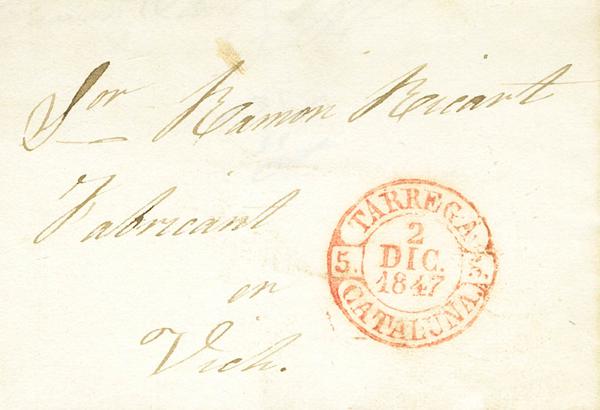 Sor Ramon Ricart
Fabricant
en
Vich.
TARREGA.
2
DIC.
1847
5.
CATALUÑA.